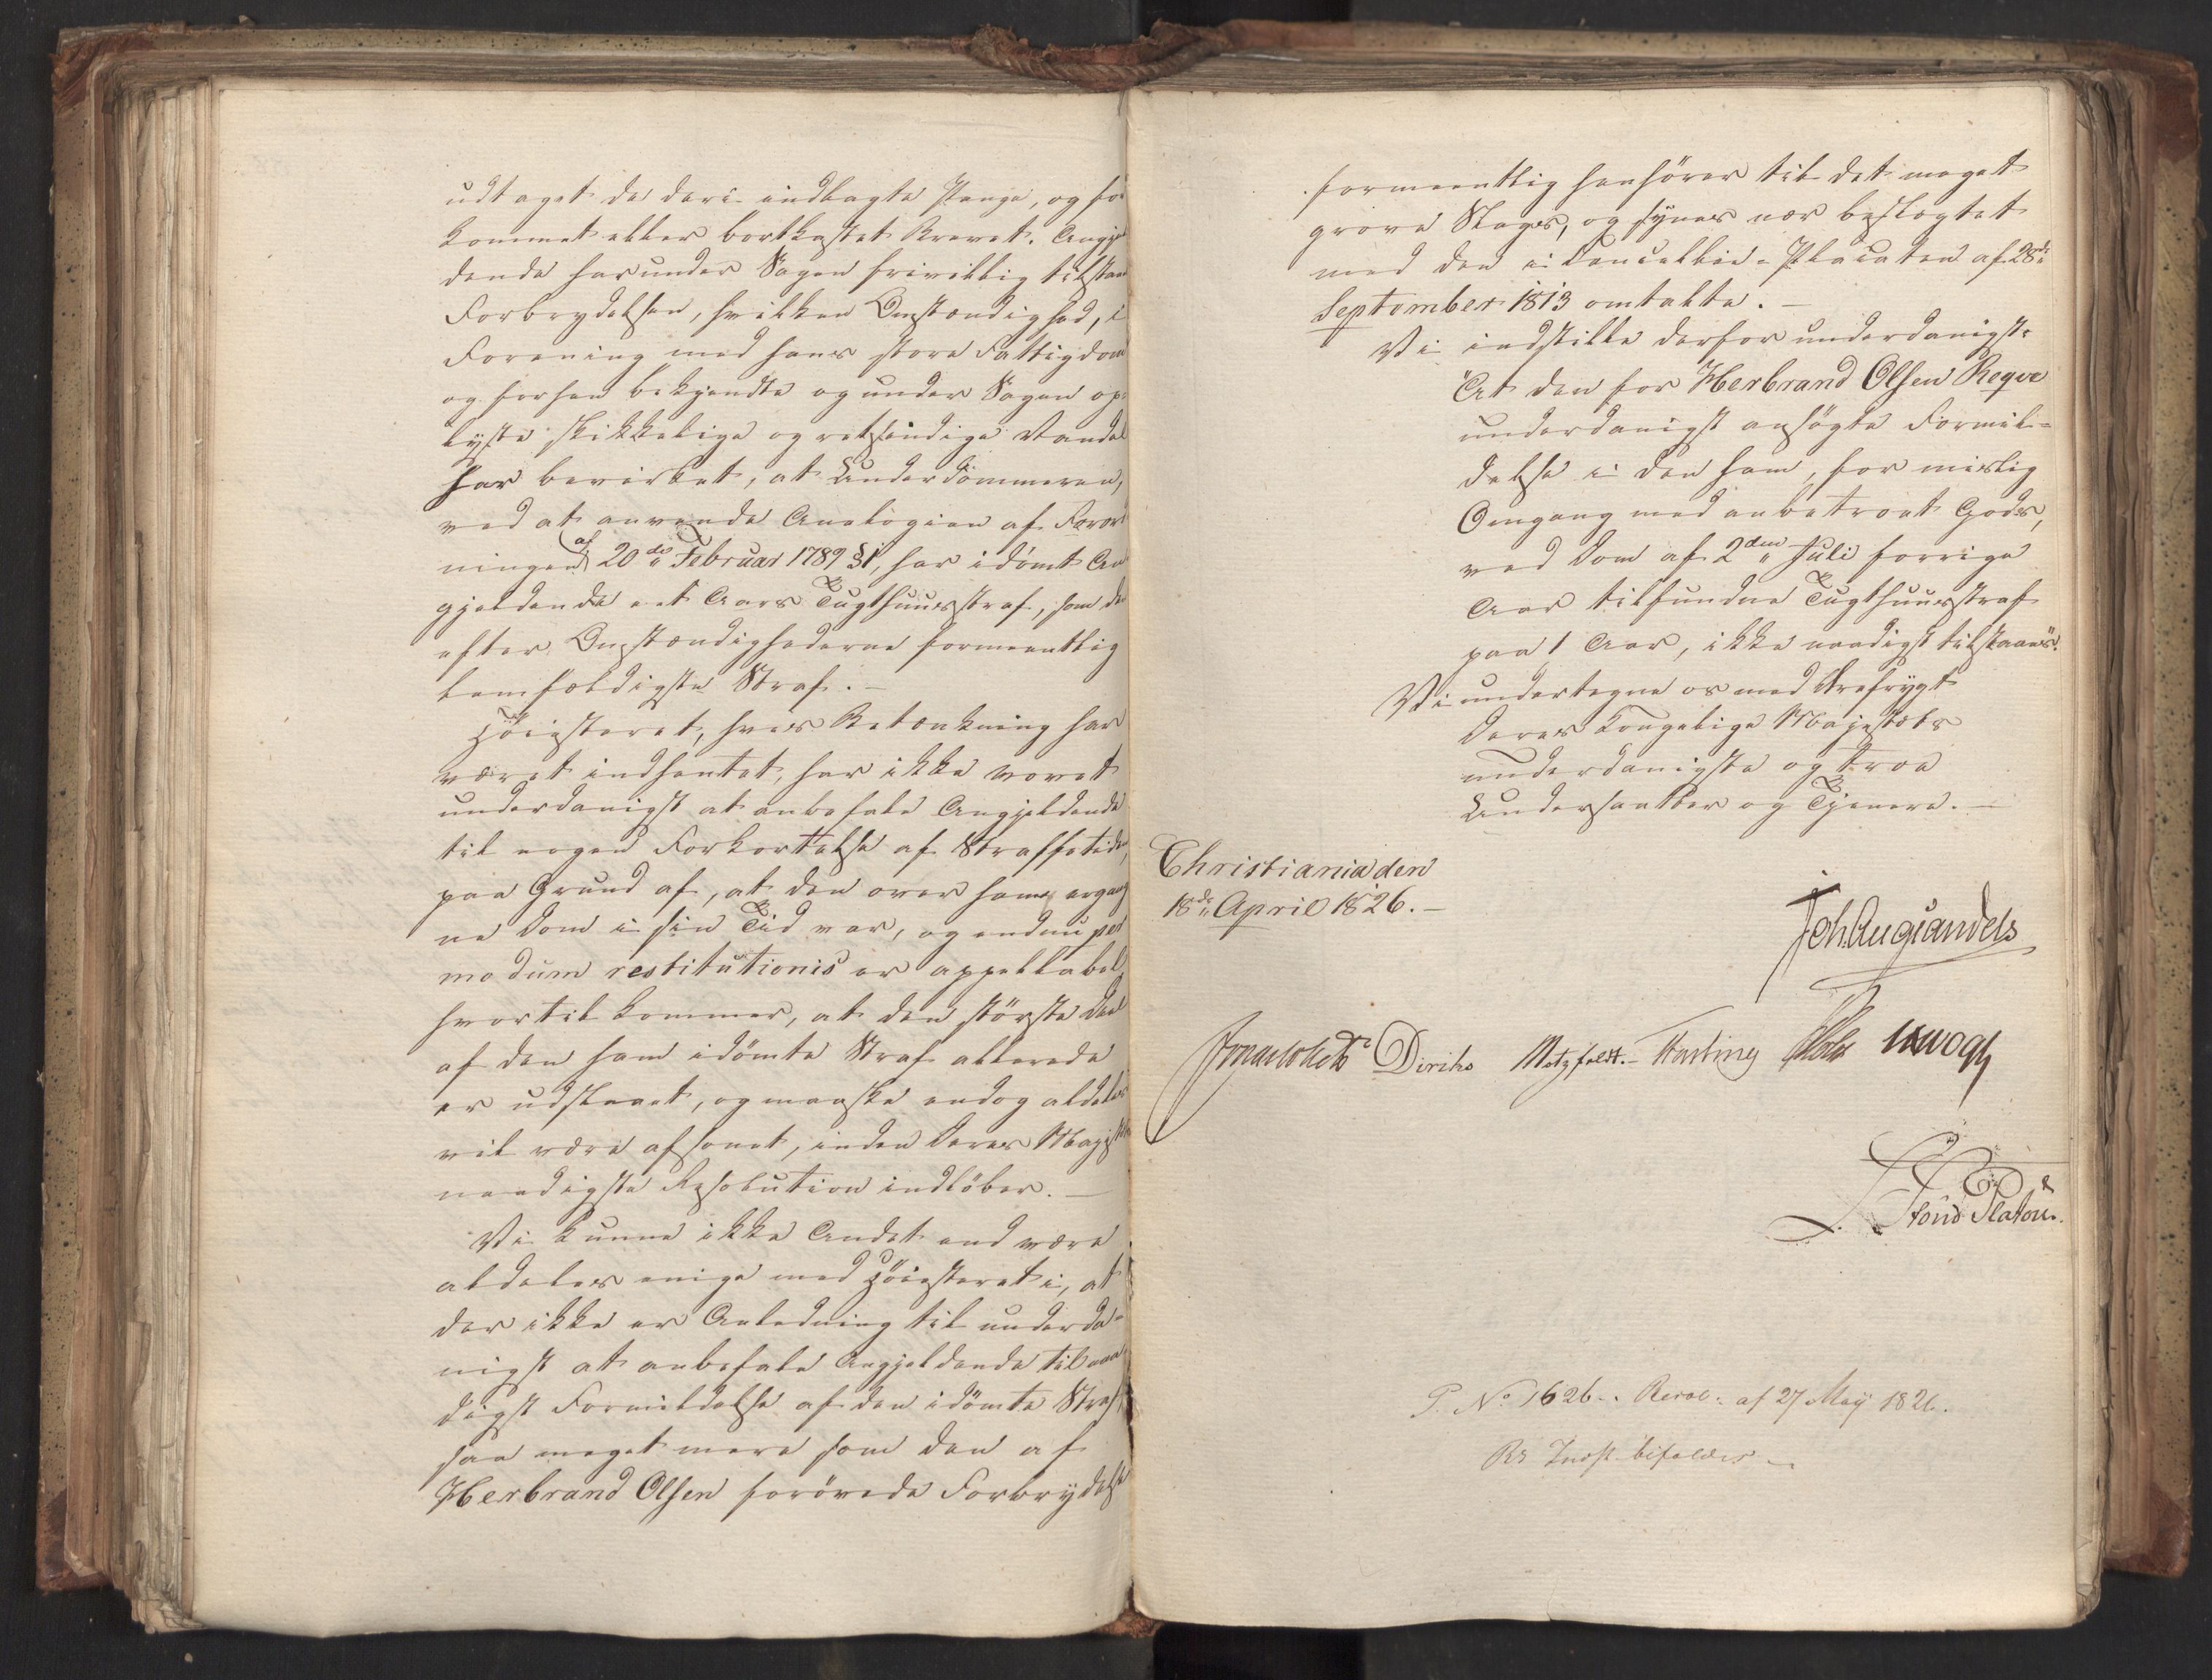 udtaget de deri indlagte Penge, og for
kommet eller bortkastet Brevet. Angjel
dende har under Sagen frivillig tilstaaet
Forbrydelsen, hvilken Omstændighed, i
Forening med hans store Fattigdom
og forhen bekjendte og under Sagen op-
lyste skikkelige og retsindige Vandel
har bevirket, at Underdommeren,
ved at anvende Analogien af Forord
ningen af 20de Februar 1789 §1, har idømt An
gjeldende eet Aars Tugthuusstraf, som den
efter Omstændighederne formeentlig
lemfældigste Straf. —
Høiesteret, hvis Betænkning har
været indhentet, har ikke vovet
underdanigst at anbefale Angjeldende
til nogen Forkortelse af Straffetiden,
paa Grund af, at den over ham ergang
ne Dom i sin Tid var, og endnu per
modum restitutionis er appellabel,
hvortil kommer, at den største Deel
af den ham idømte Straf allerede
er udstaaet, og maaske endog aldeles
vil være afsonet, inden Deres Majestæts
naadigste Resolution indløber. —
Vi kunne ikke Andet end være
aldeles enige med Høiesteret i, at
der ikke er Anledning til underda-
nigst at anbefale Angjeldende til naa-
digst Formildelse af den idømte Straf,
saa meget mere som den af
Herbrand Olsen forøvede Forbrydelse
formeentlig henhører til det meget
grove Slags, og synes nær beslægtet
med den i Cancellie-Placaten af 28de
September 1813 omtalte. —
Vi indstille derfor underdanigst:
"At den for Herbrand Olsen Reqve
underdanigst ansøgte Formil-
delse i den ham, for mislig
Omgang med anbetroet Gods,
ved Dom af 2den Juli forrige
Aar tilfundne Tugthuusstraf
paa 1 Aar, ikke naadigst tilstaaes".
Vi undertegne os med Ærefrygt
Deres Kongelige Majestæts
underdanigste og troe
Undersaatter og Tjenere. —
Christiania den
18de April 1826. —
Joh. Aug. Sandels
Jonas Collett Diriks Motzfeldt. Fasting Holst Krogh
Stoud Platou.
P. No 1626. Resol: af 27 May 1826.
Rs Indst. bifaldes —